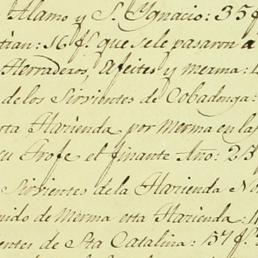 Alamo y S. Ygnacio: 35 f
tian: 16 f.s que se le pasaron a
Herraderos, afeites y merma:
de los Sirvientes de Cobadonga:
rta Hazienda por Merma en la
su Trofe el finante Año: 23
Sirvientes de la Hazienda No
nido de Merma esta Hazienda:
enter de Sta Catalina: 57 f.s